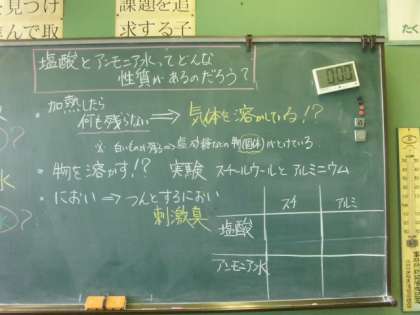 を見つけ
んで取
課題を追
求する子
塩酸とアンモニア水ってどんな
性質があるのだろう?
・加熱したら
何も残らない ⇒ 気体を溶かしている!?
※ 白いものが残る⇒
固体 がとけている
・物を溶かす!? 実験 スチールウールとアルミニウム
・におい ⇒ つんとするにおい
刺激臭
スチ アルミ
塩酸
アンモニア水